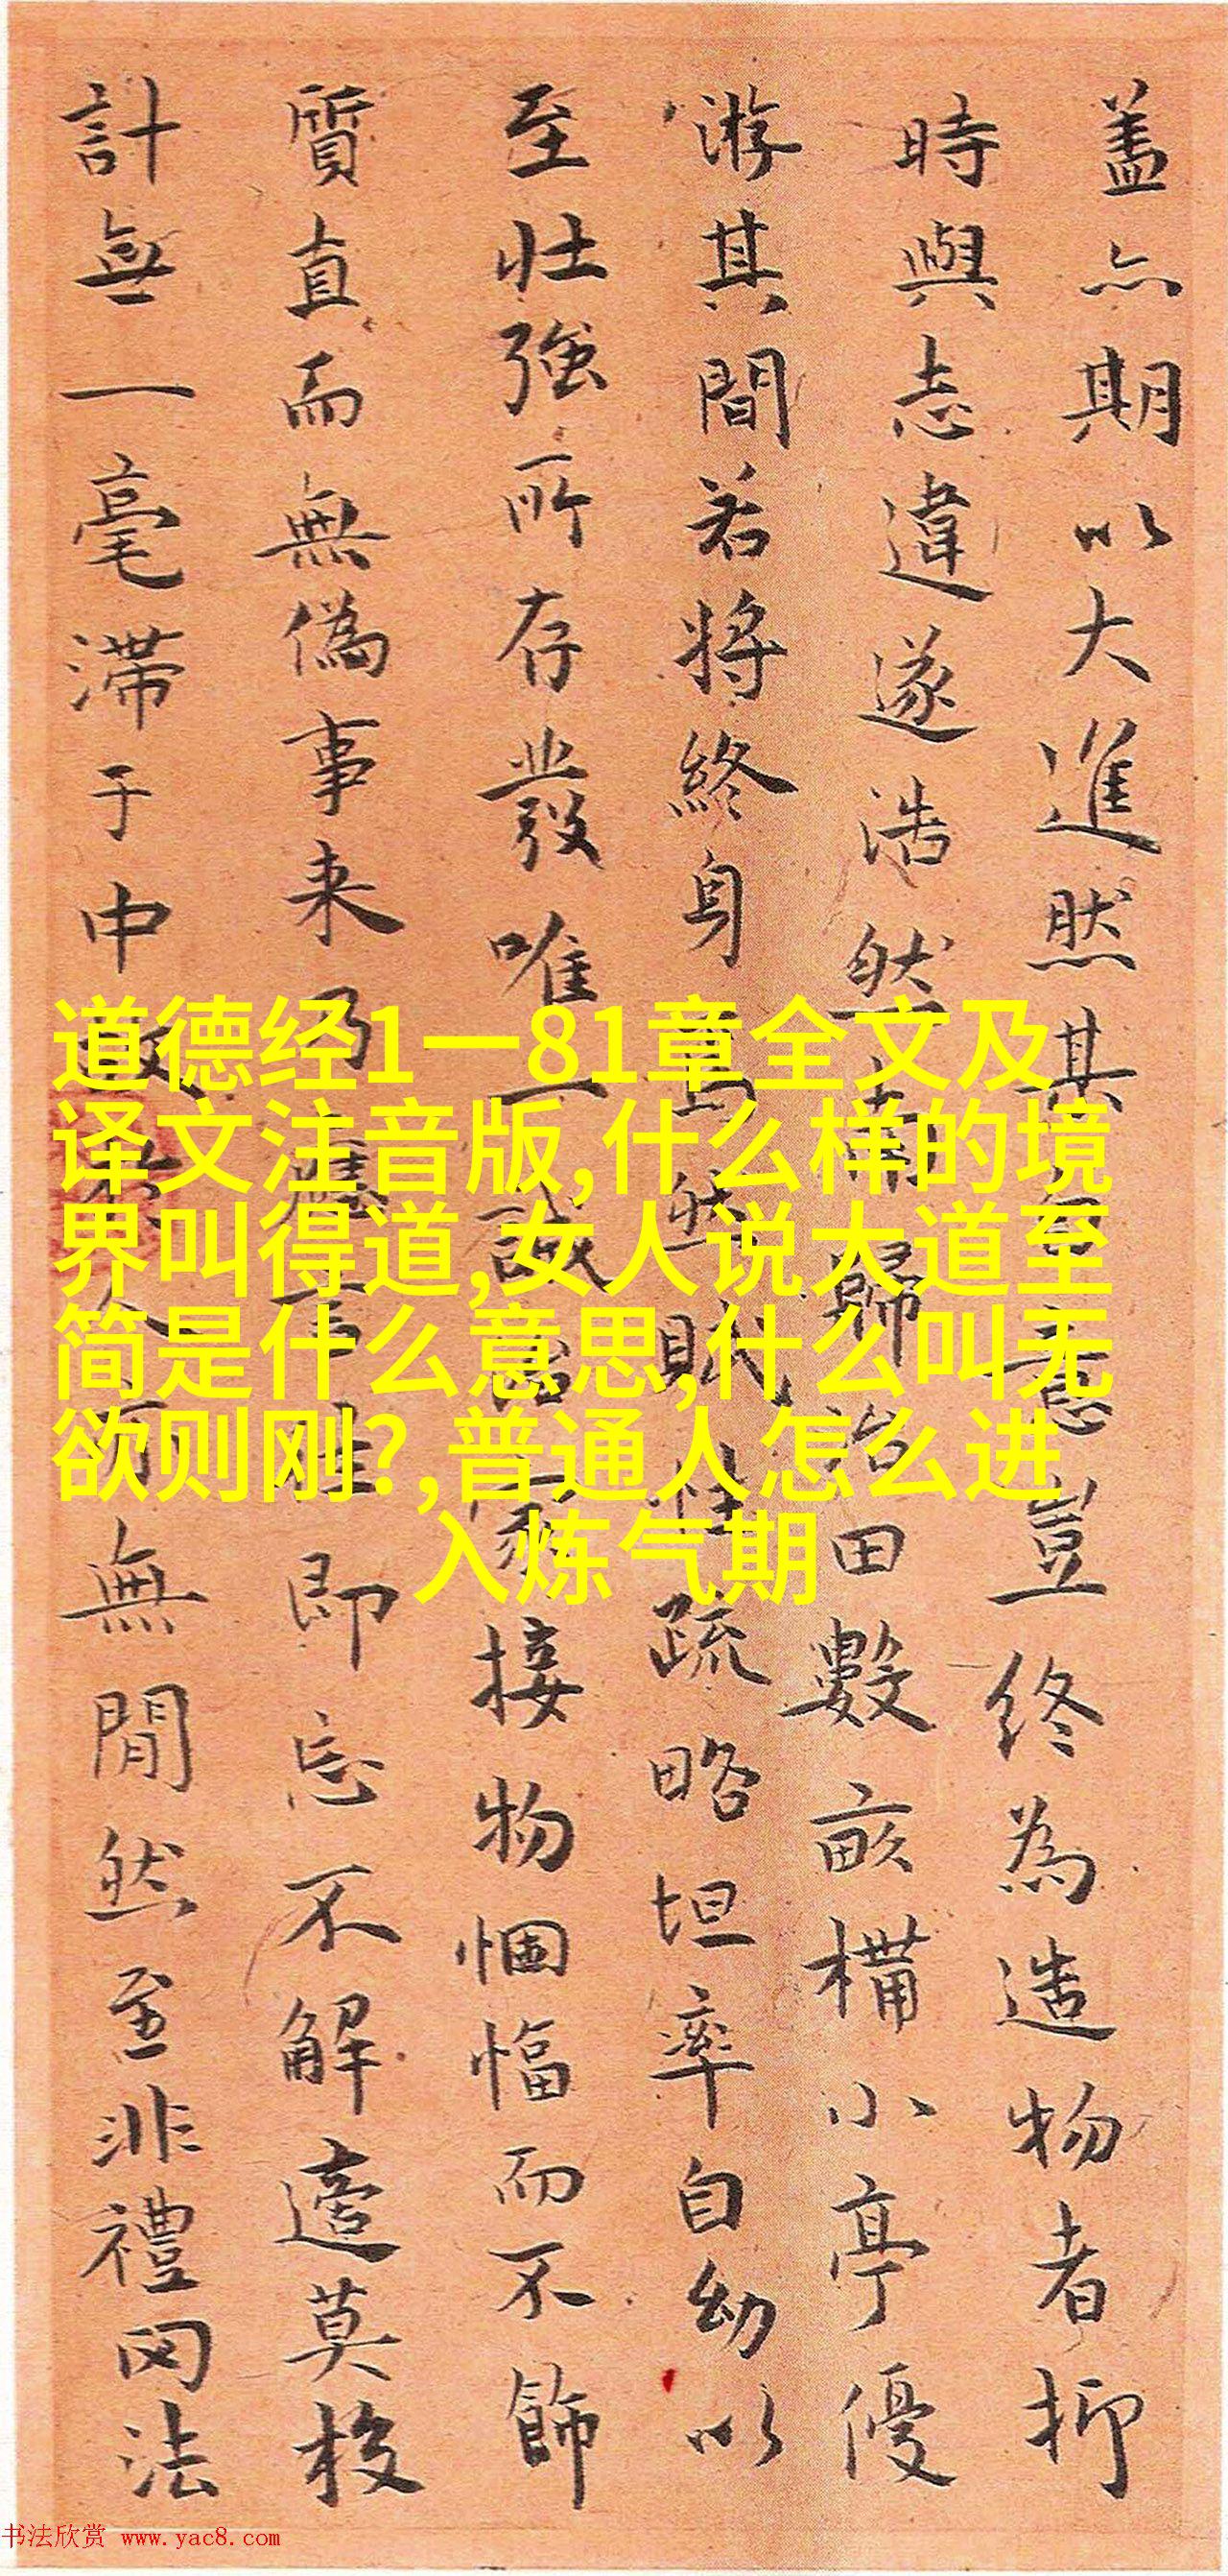 盖亦期以大進然其意豈終為造物者抑
時與志違遂浩然南歸治田數畝構小亭優
游其間若将終身焉然賦性疏略坦率自幼以
至壮強所存發唯一誠治家接物悃愊而不飾
質直而無偽事来乃應即忘不解適莫校
計無一毫滞于中無閒然至非禮罔法
道德经1一81章全文及
译文注音版,什么样的境
界叫得道,女人说大道至
简是什么意思,什么叫无
欲则刚?,普通人怎么进
入炼气期
书法欣赏 www.yac8.com